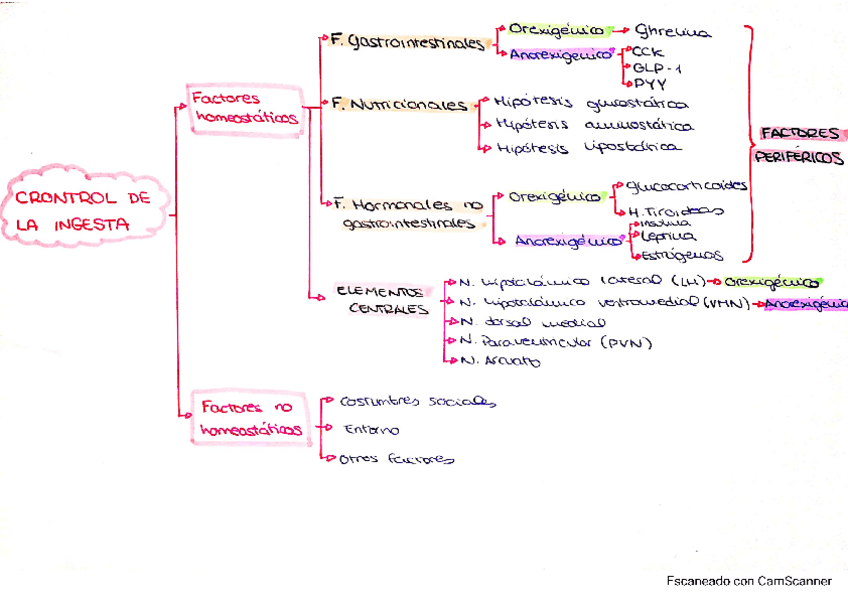 CRONTROL DE
LA INGESTA
Factores
homeostáticos
F. Gastrointestinales
Orexigénico
Ghrelina
Anorexigénico
CCK
GLP-1
PYY
F. Nutricionales
Hipótesis glucostática
Hipótesis aminostática
Hipótesis lipostática
F. Hormonales no
gastrointestinales
Orexigénico
Glucocorticoides
H. Tiroideas
Anorexigénico
Insulina
Leptina
Estrógenos
FACTORES
PERIFÉRICOS
ELEMENTOS
CENTRALES
N. hipotalámico lateral (LH)
Orexigénico
N. hipotalámico ventromedial (VMN)
Anorexigénico
N. dorsal medial
N. Paraventricular (PVN)
N. Arcuato
Factores no
homeostáticos
Costumbres sociales
Entorno
Otros factores
Escaneado con CamScanner